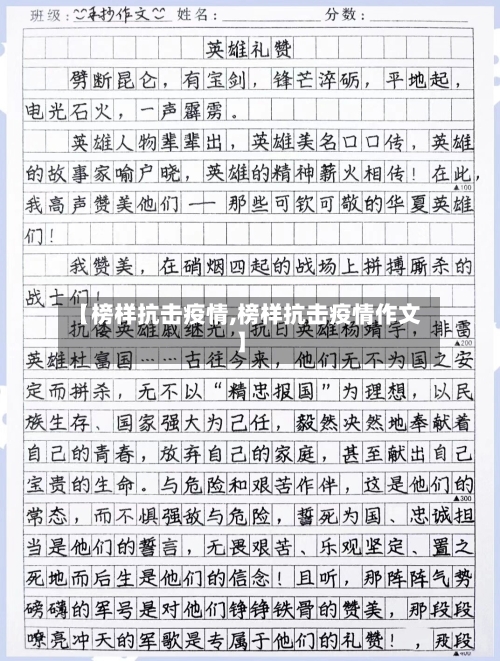 班级：手抄作文 姓名： 分数：
英雄礼赞
劈断昆仑，有宝剑，锋芒淬砺，平地起，
电光石火，一声霹雳。
英雄人物辈辈出，英雄美名口口传，英雄
的故事家喻户晓，英雄的精神薪火相传！在此，
▲100
我高声赞美他们——那些可钦可敬的华夏英雄
们！
我赞美，在硝烟四起的战场上拼搏厮杀的
战士们！
【榜样抗击疫情,榜样抗击疫情作文
】
抗倭英雄戚继光，抗日英雄杨靖宇，排雷
▲200
英雄杜富国……古往今来，他们无不为国之安
定而拼杀，无不以“精忠报国”为理想，以民
族生存、国家强大为己任，毅然决然地奉献着
自己的青春，放弃自己的家庭，甚至献出自己
宝贵的生命。与危险和艰苦作伴，这是他们的
▲300
常态，而不惧强敌与危险，誓死为国、忠诚担
当是他们的誓言，无畏艰苦、乐观坚定、置之
死地而后生是他们的信念！且听，那阵阵气势
磅礴的军号是对他们铮铮铁骨的赞美，那段段
嘹亮冲天的军歌是专属于他们的礼赞！，段
▲400